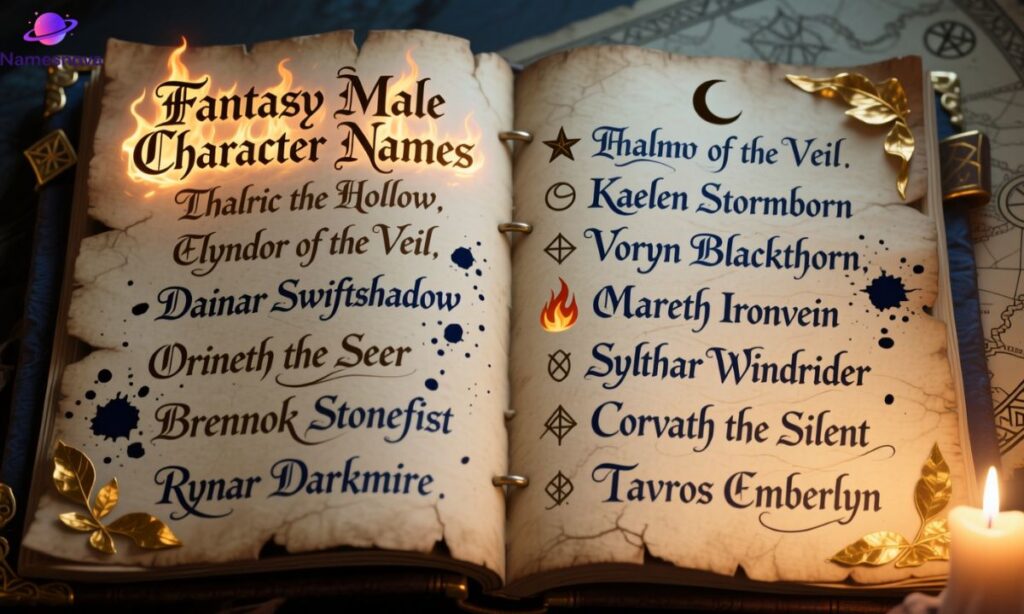 Namesnova
Fantasy Male
Character Names
Thalric the Hollow,
Elyndor of the Veil,
Dainar Swiftshadow
Orineth the Seer
Brennok Stonefist
Rynar Darkmire.
of the Veil.
Kaelen Stormborn
Voryn Blackthorn,
Mareth Ironvein
Sylthar Windrider
Corvath the Silent
Tavros Emberlyn